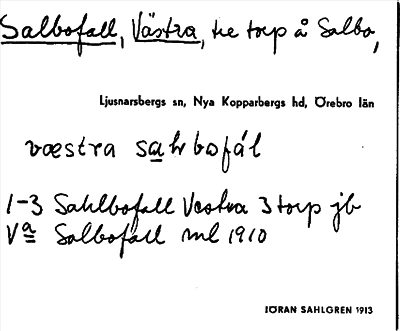 Salbofall, Västra, tre torp å Salbo,
Ljusnarsbergs sn, Nya Kopparbergs hd, Örebro län
væstra sahbofál
1-3 Sahlbofall Vestra 3 torp jb
Vª Salbofall ml 1910
JÖRAN SAHLGREN 1913